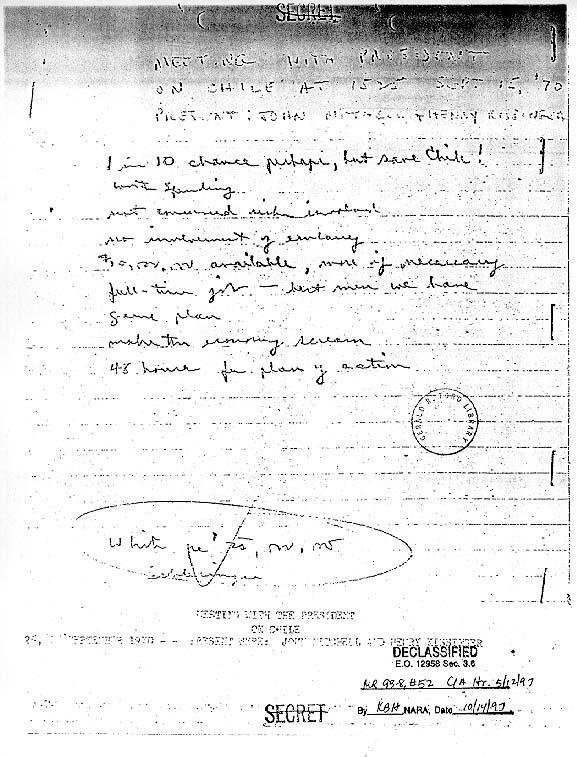 SECRET
MEETING WITH PRESIDENT
ON CHILE AT 1525 SEPT 15, '70
PRESENT: JOHN MITCHELL & HENRY KISSINGER
1 in 10 chance perhaps, but save Chile!
worth spending
not concerned risks involved
no involvement of embassy
$10,000,000 available, more if necessary
full-time job — best men we have
game plan
make the economy scream
48 hours for plan of action
GERALD R. FORD LIBRARY
White
MEETING WITH THE PRESIDENT
ON CHILE
SEPTEMBER 1970 -- PRESENT WERE: JOHN MITCHELL AND HENRY KISSINGER
DECLASSIFIED
E.O. 12958 Sec. 3.6
MR 98-8, #52 CIA ltr. 5/12/97
SECRET
By KBH NARA, Date 10/14/97